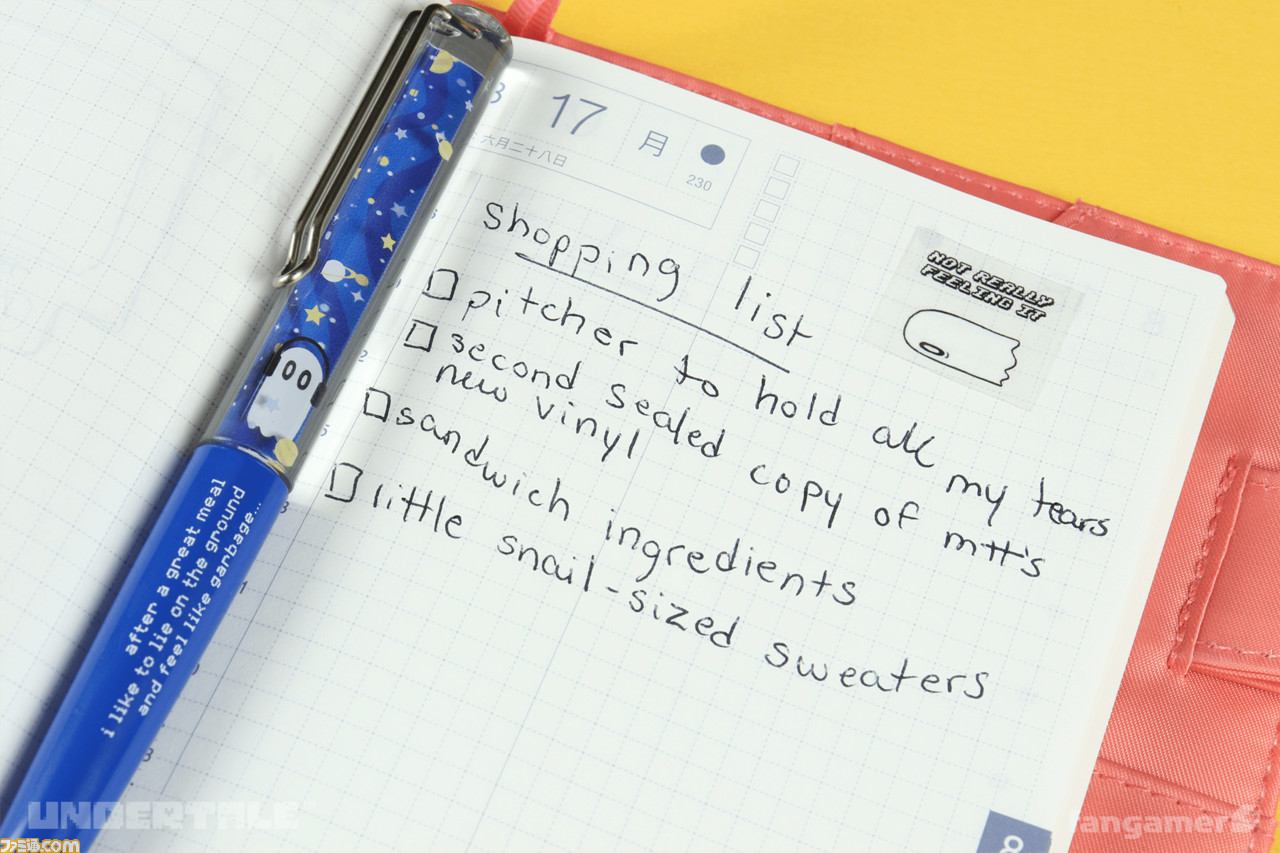 17
月
六月二十八日
230
shopping list
NOT REALLY
FEELING IT
pitcher to hold all my tears
second sealed copy of mtt's
new vinyl
sandwich ingredients
little snail-sized sweaters
after a great meal
i like to lie on the ground
and feel like garbage...
8
UNDERTALE
fangamer
ファミ通.com